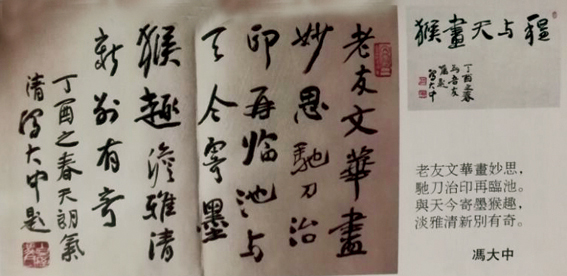 老友文華畫
妙思馳刀治
印再臨池与
天今寄墨
猴趣澹雅清
新別有奇
丁酉之春天朗氣
清馮大中題
程与天畫猴
丁酉之春
馮大中
老友文華畫妙思，
馳刀治印再臨池。
與天今寄墨猴趣，
淡雅清新別有奇。
馮大中